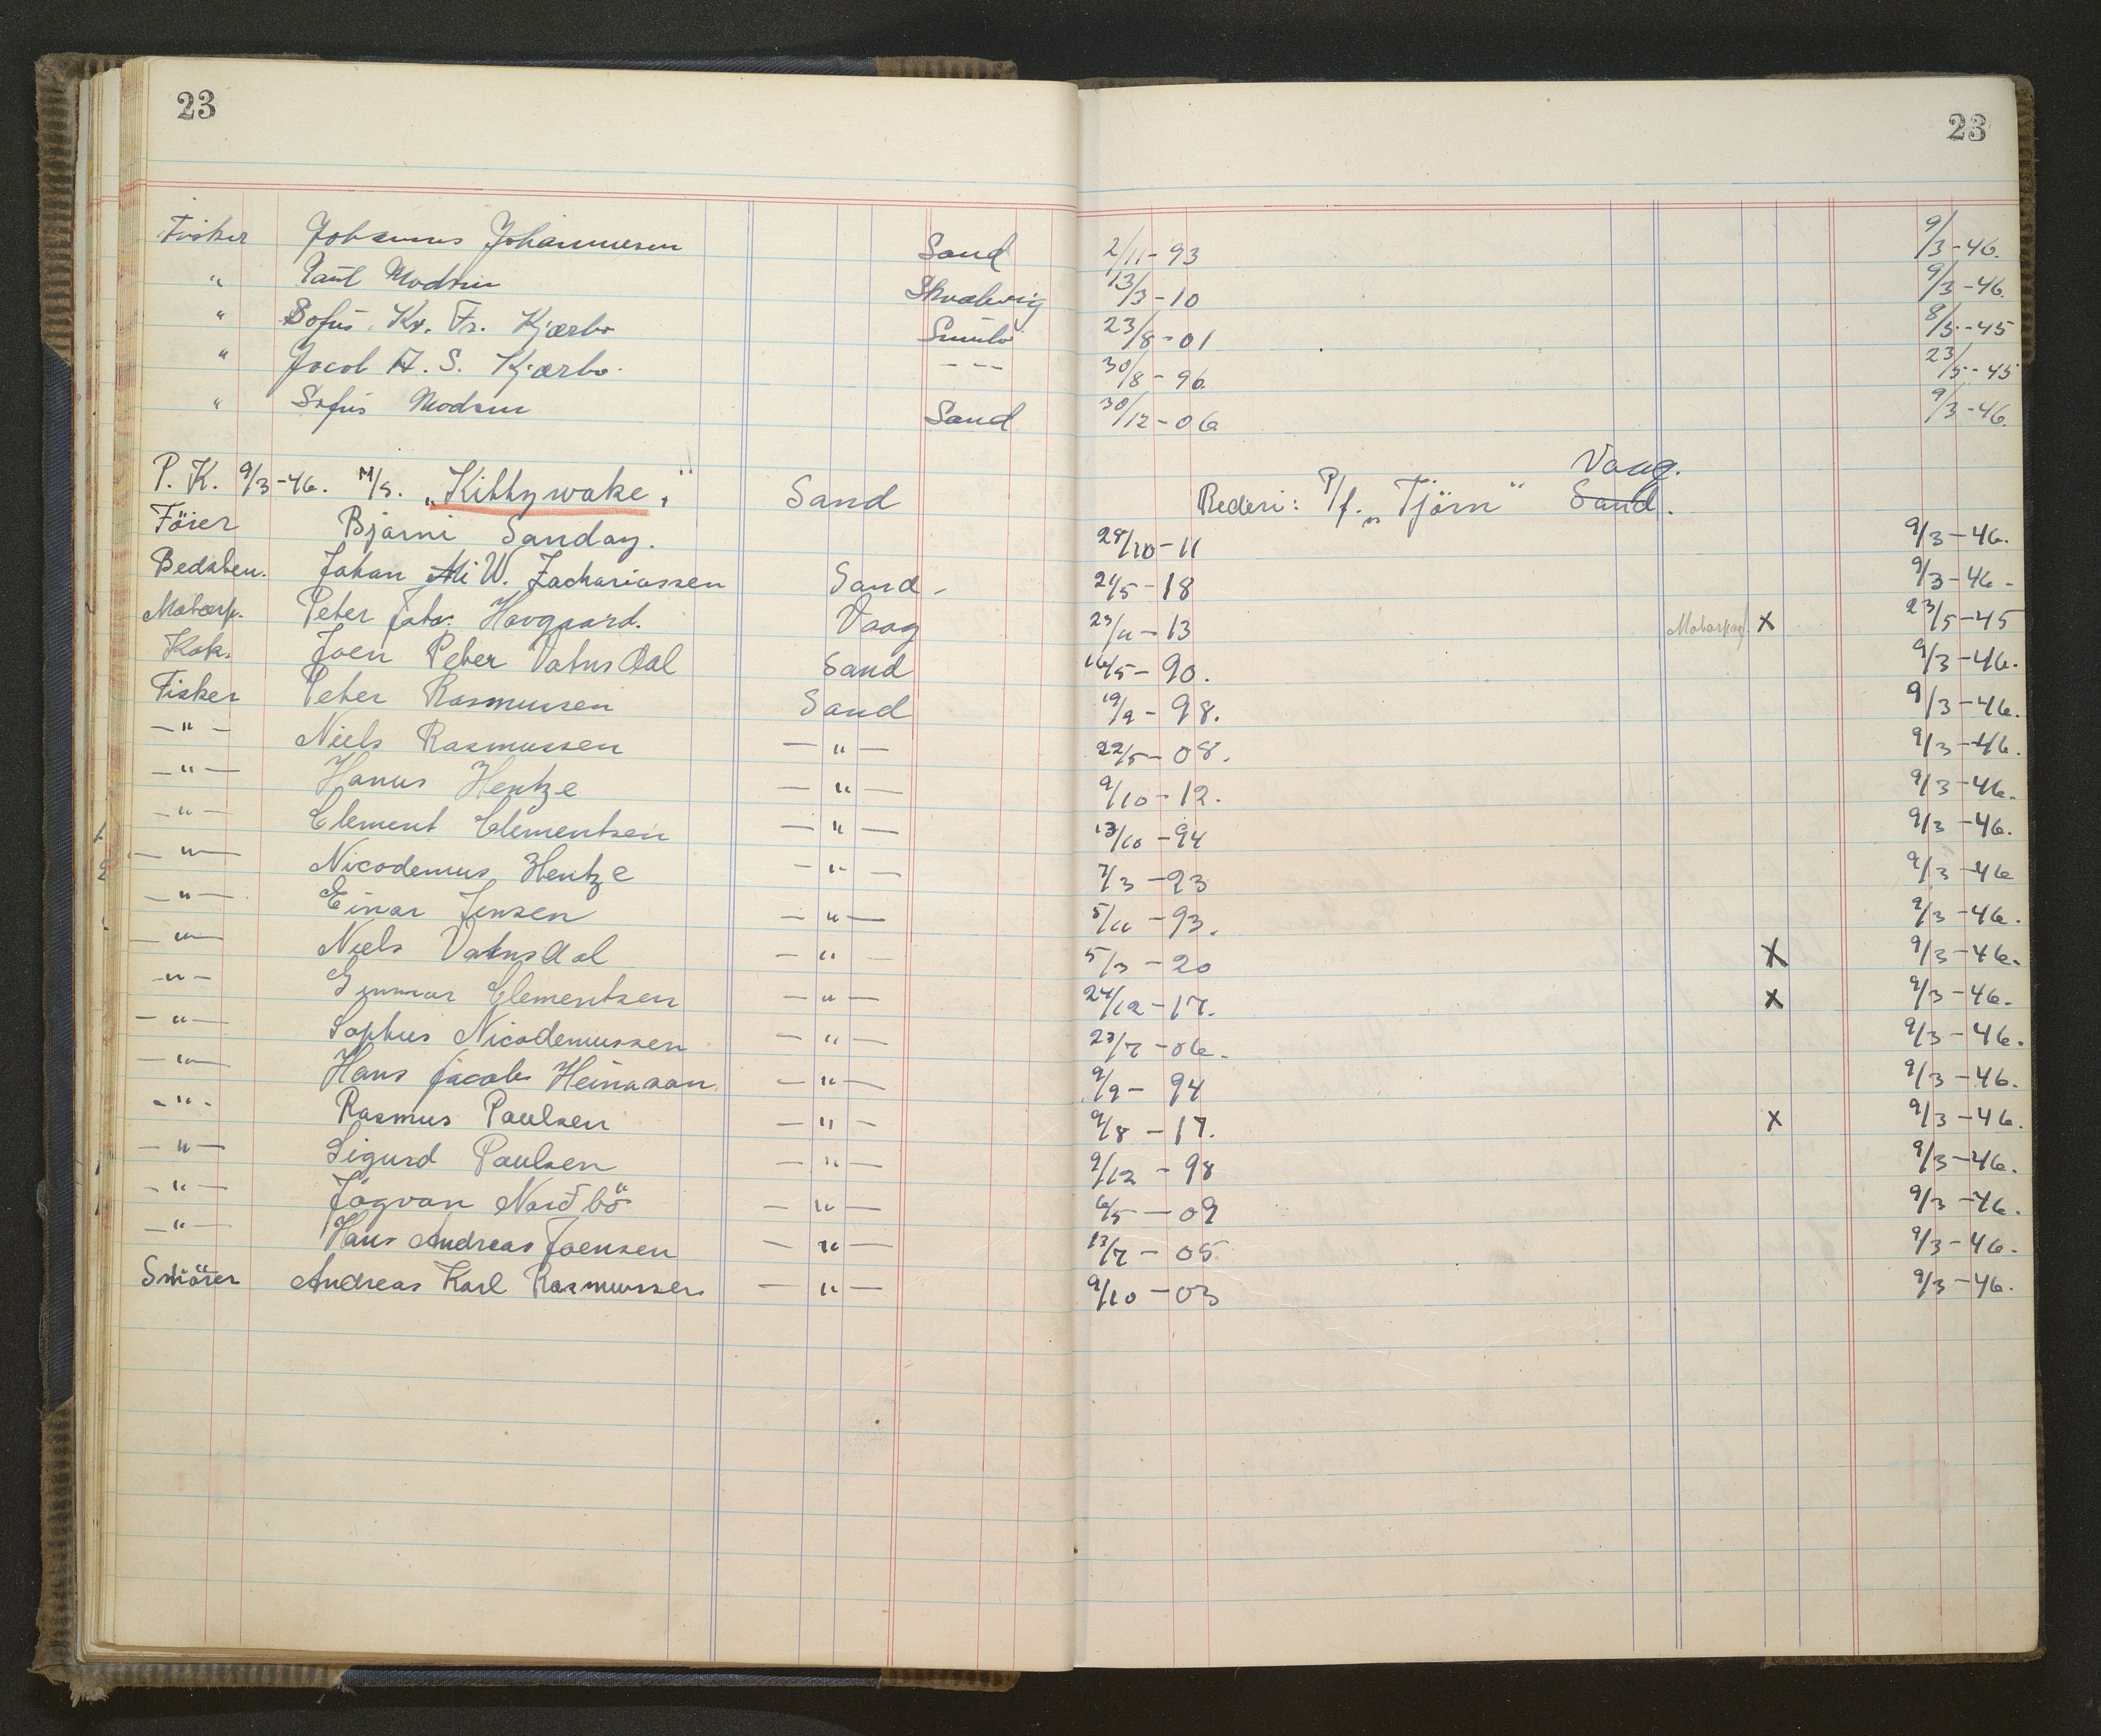 23 23
Fisker Johannus Johannesen Sand 2/11-93 9/3-46.
" Paul Madsen Skvalvig 13/3-10 9/3-46.
" Sofus. Kr. Fr. Kjærbo Sumbö 23/8-01 8/5-45
" Jacob A. S. Kjærbo. - - - 30/8-96. 23/5-45
" Sofus Madsen Sand 30/12-06 9/3-46.
Vaag.
P. K. 9/3-46. M/S. "Kittywake" Sand Rederi: P/f. "Tjörn" Sand.
Förer Bjarni Sanday. 28/10-11 9/3-46.
Bedstem. Johan W. Zachariassen Sand - 21/5-18 9/3-46-
Motorp. Peter Hovgaard. Vaag 23/11-13 Motorpas X 23/5-45
Kok. Joen Peter Vatnsdal Sand 16/5-90. 9/3-46.
Fisker Peter Rasmussen Sand 19/9-98. 9/3-46.
— " — Niels Rasmussen — " — 22/5-08. 9/3-46.
— " — Hanus Hentze — " — 9/10-12. 9/3-46.
— " — Clement Clementsen — " — 13/10-94 9/3-46.
— " — Nicodemus Hentze — " — 7/3-93 9/3-46
— " — Einar Jensen — " — 5/11-93. 9/3-46.
— " — Niels Vatnsdal — " — 5/3-20 X 9/3-46.
— " — Gunnar Clementsen — " — 24/12-17. X 9/3-46.
— " — Sophus Nicodemussen — " — 23/7-06. 9/3-46.
— " — Hans Jacob Heinasan — " — 9/9-94 9/3-46.
— " — Rasmus Paulsen — " — 9/8-17. X 9/3-46.
— " — Sigurd Paulsen — " — 9/12-98 9/3-46.
— " — Jógvan Norðbö — " — 6/5-09 9/3-46.
— " — Hans Andreas Joensen — " — 13/7-05 9/3-46.
Smörer Andreas Karl Rasmussen — " — 9/10-03 9/3-46.